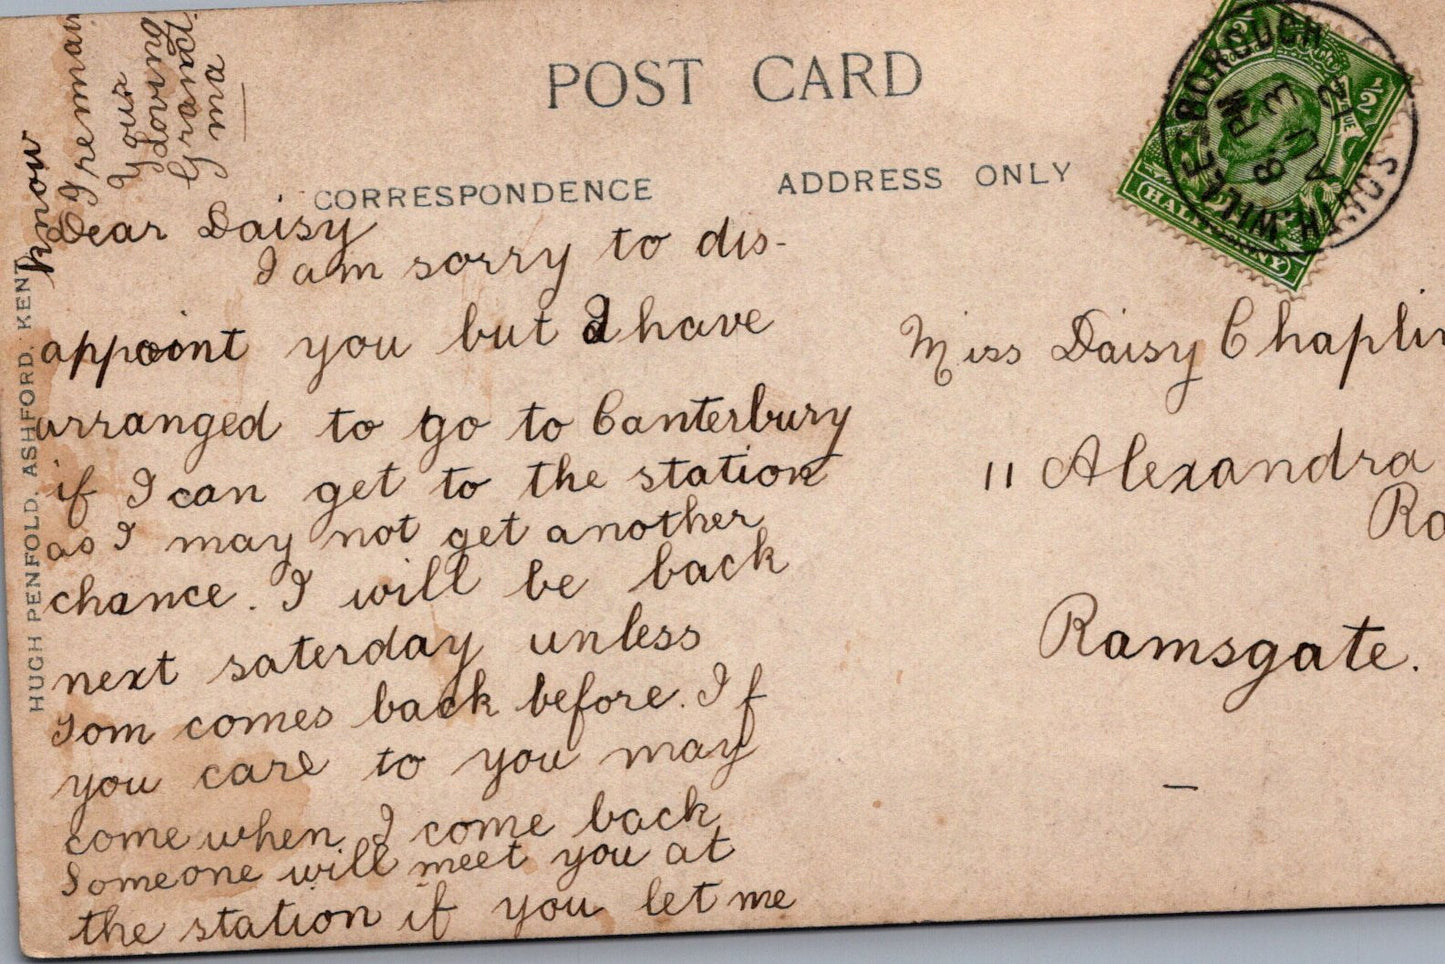 POST CARD
CORRESPONDENCE
ADDRESS ONLY
Dear Daisy
I am sorry to dis-
appoint you but I have
arranged to go to Canterbury
if I can get to the station
as I may not get another
chance. I will be back
next saterday unless
Tom comes back before. If
you care to you may
come when I come back
Someone will meet you at
the station if you let me
know
I remain
Your
loving
Grand
ma
Miss Daisy Chaplin
11 Alexandra
Ro
Ramsgate.
HUGH PENFOLD, ASHFORD, KENT.
WILLESBOROUGH
8 PM
AU 3
12
HALFPENNY
1/2